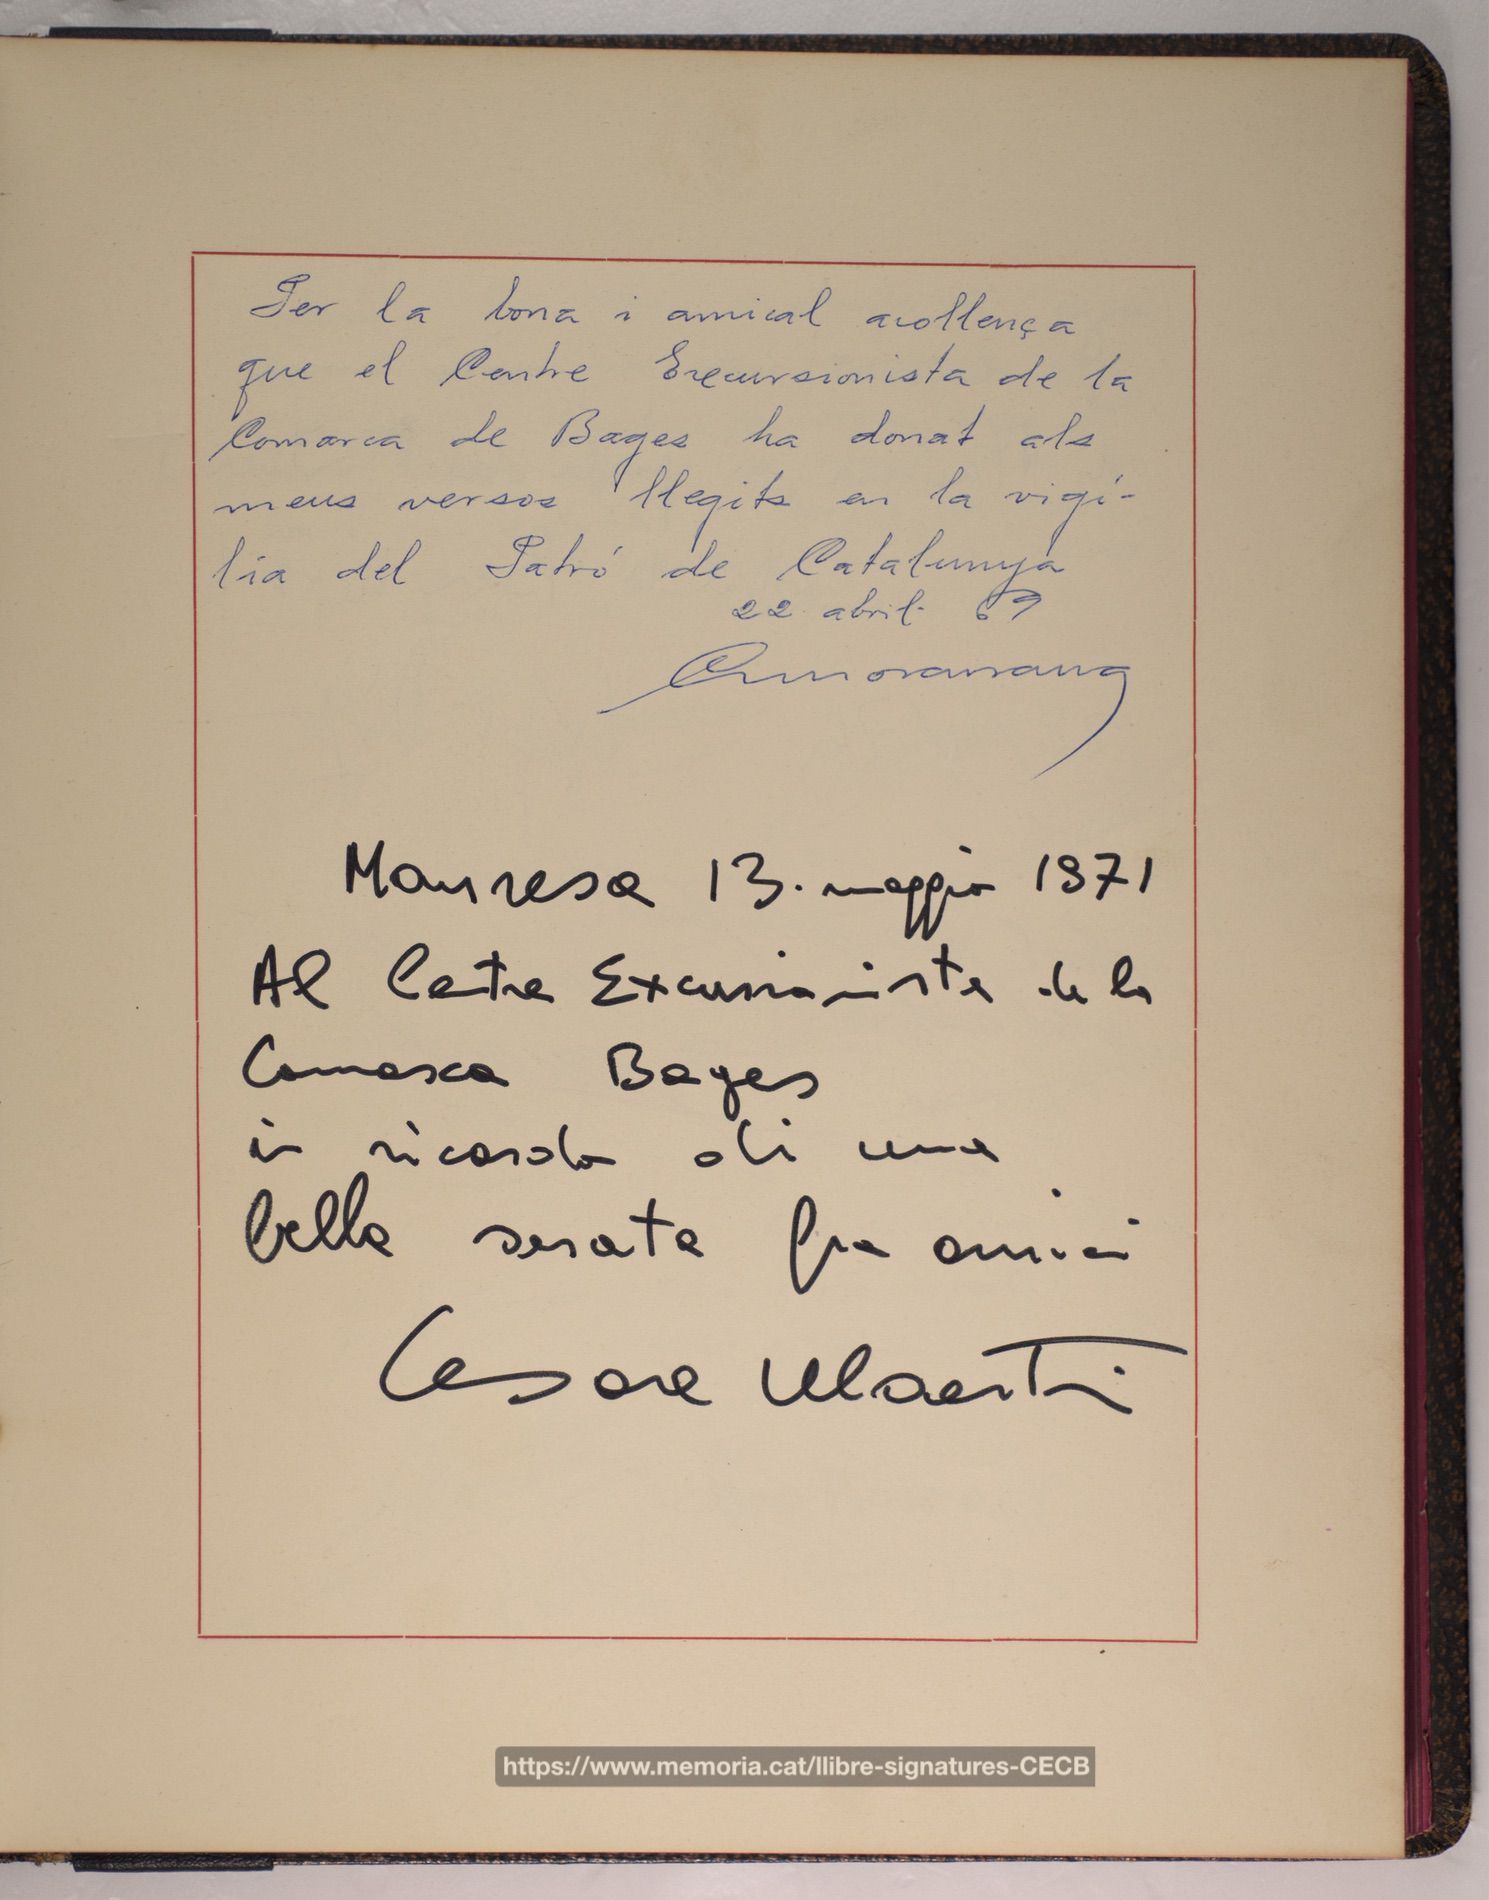 Per la bona i amical acollença
que el Centre Excursionista de la
Comarca de Bages ha donat als
meus versos llegits en la vigí-
lia del Patró de Catalunya
22 abril 69
Manresa 13. maggio 1971
Al Centre Excursionista de la
Comarca Bages
in ricordo di una
bella serata fra amici
Cesare Maestri
https://www.memoria.cat/llibre-signatures-CECB